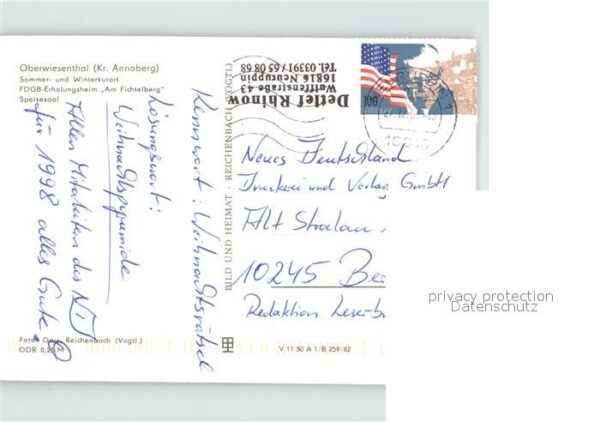 Oberwiesenthal (Kr. Annaberg)
Sommer- und Winterkurort
FDGB-Erholungsheim „Am Fichtelberg"
Speisesaal
Kennwort: Weihnachtsrätsel
Lösungswort:
Weihnachtspyramide
Allen Mitarbeitern des ND
für 1998 alles Gute!
Foto: Dörr Reichenbach (Vogtl.)
DDR 0,25 M
BILD UND HEIMAT · REICHENBACH (VOGTL)
V 11 50 A 1/B 259/82
Detlef Rhinow
Wulffenstraße 43
16816 Neuruppin
Tel. 03391/65 08 68
100
Neues Deutschland
Druckerei und Verlag GmbH
Alt Stralau
10245 Be
Redaktion Leser
privacy protection
Datenschutz